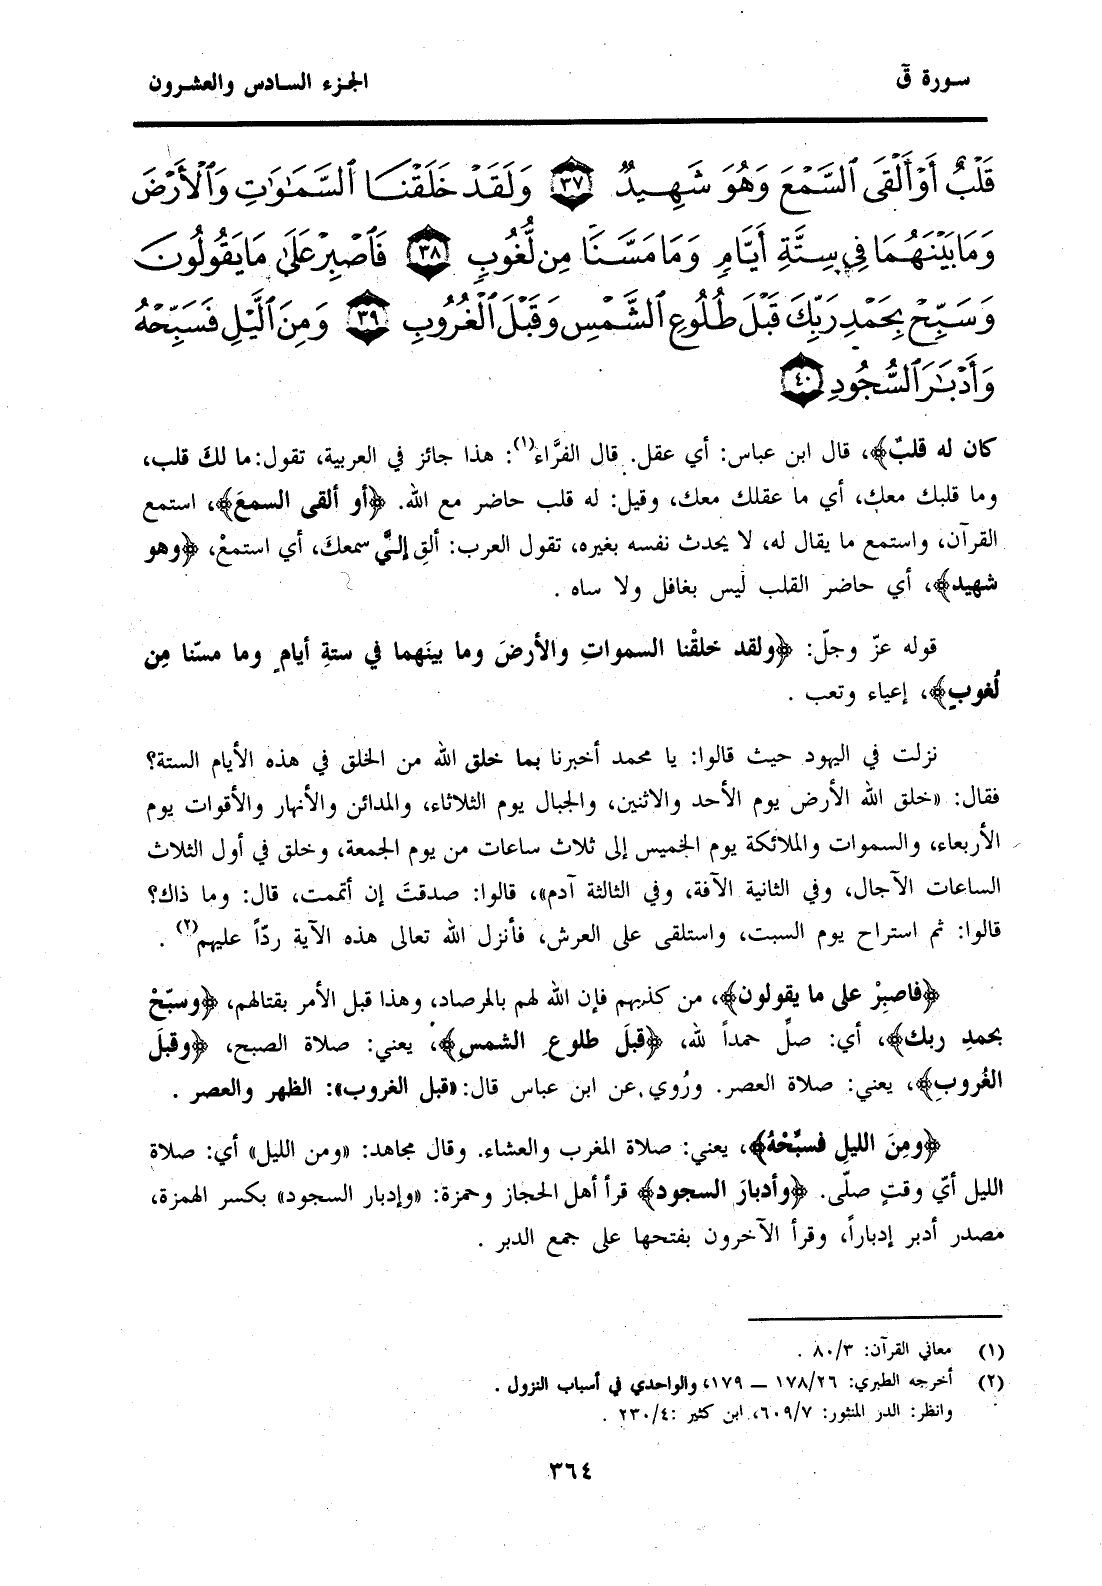 سورة قٓ
الجزء السادس والعشرون
قَلْبٌ أَوْ أَلْقَى ٱلسَّمْعَ وَهُوَ شَهِيدٌ ٣٧ وَلَقَدْ خَلَقْنَا ٱلسَّمَٰوَٰتِ وَٱلْأَرْضَ
وَمَا بَيْنَهُمَا فِي سِتَّةِ أَيَّامٍ وَمَا مَسَّنَا مِن لُّغُوبٍ ٣٨ فَٱصْبِرْ عَلَىٰ مَا يَقُولُونَ
وَسَبِّحْ بِحَمْدِ رَبِّكَ قَبْلَ طُلُوعِ ٱلشَّمْسِ وَقَبْلَ ٱلْغُرُوبِ ٣٩ وَمِنَ ٱلَّيْلِ فَسَبِّحْهُ
وَأَدْبَٰرَ ٱلسُّجُودِ ٤٠
كان له قلبٌ﴾، قال ابن عباس: أي عقل. قال الفرَّاء(١): هذا جائز في العربية، تقول: ما لكَ قلب،
وما قلبك معك، أي ما عقلك معك، وقيل: له قلب حاضر مع الله. ﴿أو ألقى السمعَ﴾، استمع
القرآن، واستمع ما يقال له، لا يحدث نفسه بغيره، تقول العرب: ألقِ إليَّ سمعكَ، أي استمعْ، ﴿وهو
شهيد﴾، أي حاضر القلب ليس بغافل ولا ساه .
قوله عزّ وجلّ: ﴿ولقد خلقْنا السمواتِ والأرضَ وما بينَهما في ستةِ أيامٍ وما مسّنا مِن
لُغوبٍ﴾، إعياء وتعب .
نزلت في اليهود حيث قالوا: يا محمد أخبرنا بما خلق الله من الخلق في هذه الأيام الستة؟
فقال: «خلق الله الأرض يوم الأحد والاثنين، والجبال يوم الثلاثاء، والمدائن والأنهار والأقوات يوم
الأربعاء، والسموات والملائكة يوم الخميس إلى ثلاث ساعات من يوم الجمعة، وخلق في أول الثلاث
الساعات الآجال، وفي الثانية الآفة، وفي الثالثة آدم»، قالوا: صدقتَ إن أتممت، قال: وما ذاك؟
قالوا: ثم استراح يوم السبت، واستلقى على العرش، فأنزل الله تعالى هذه الآية ردّاً عليهم(٢) .
﴿فاصبِرْ على ما يقولون﴾، من كذبهم فإن الله لهم بالمرصاد، وهذا قبل الأمر بقتالهم، ﴿وسبّحْ
بحمدِ ربك﴾، أي: صلِّ حمداً لله، ﴿قبلَ طلوعِ الشمسِ﴾، يعني: صلاة الصبح، ﴿وقبلَ
الغُروبِ﴾، يعني: صلاة العصر. ورُوي عن ابن عباس قال: «قبل الغروب»: الظهر والعصر .
﴿ومِنَ الليلِ فسبِّحْهُ﴾، يعني: صلاة المغرب والعشاء. وقال مجاهد: «ومن الليل» أي: صلاة
الليل أيّ وقتٍ صلّى. ﴿وأدبارَ السجود﴾ قرأ أهل الحجاز وحمزة: «وإدبار السجود» بكسر الهمزة،
مصدر أدبر إدباراً، وقرأ الآخرون بفتحها على جمع الدبر .
(١) معاني القرآن: ٨٠/٣ .
(٢) أخرجه الطبري: ١٧٨/٢٦ ــ ١٧٩، والواحدي في أسباب النزول .
وانظر: الدر المنثور: ٦٠٩/٧، ابن كثير :٢٣٠/٤ .
٣٦٤